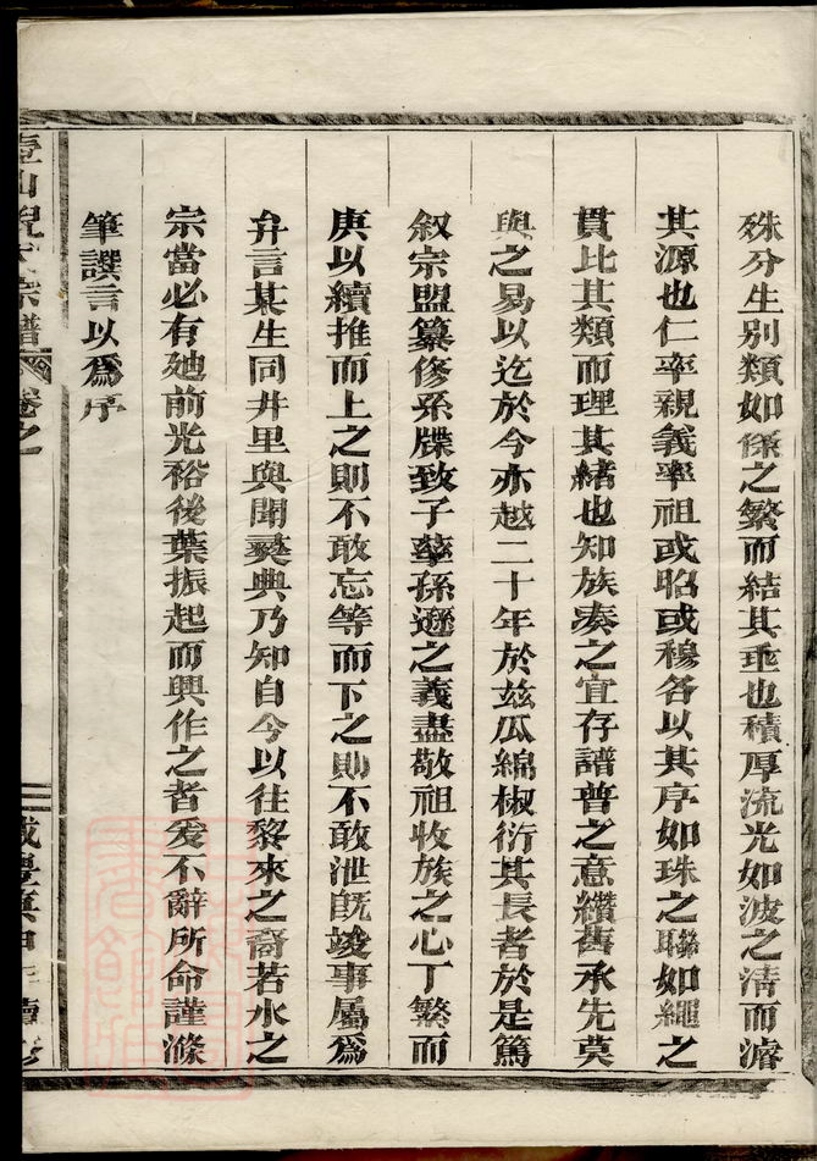 殊分生別類如係之繁而結其垂也積厚流光如波之清而濬
其源也仁率親義率祖或昭或穆各以其序如珠之聯如繩之
貫比其類而理其緒也知族湊之宜存譜普之意纘舊承先莫
與之易以迄於今亦越二十年於茲瓜綿椒衍其長者於是篤
叙宗盟纂修系牒致子孳孫遜之義盡敬祖收族之心丁繁而
庚以續推而上之則不敢忘等而下之則不敢泄旣竣事屬爲
弁言某生同井里與聞彝典乃知自今以往黎來之裔若水之
宗當必有廸前光裕後葉振起而興作之者爰不辭所命謹滌
筆譔言以爲序
壺山倪氏宗譜 卷之一
咸豐庚申年續修